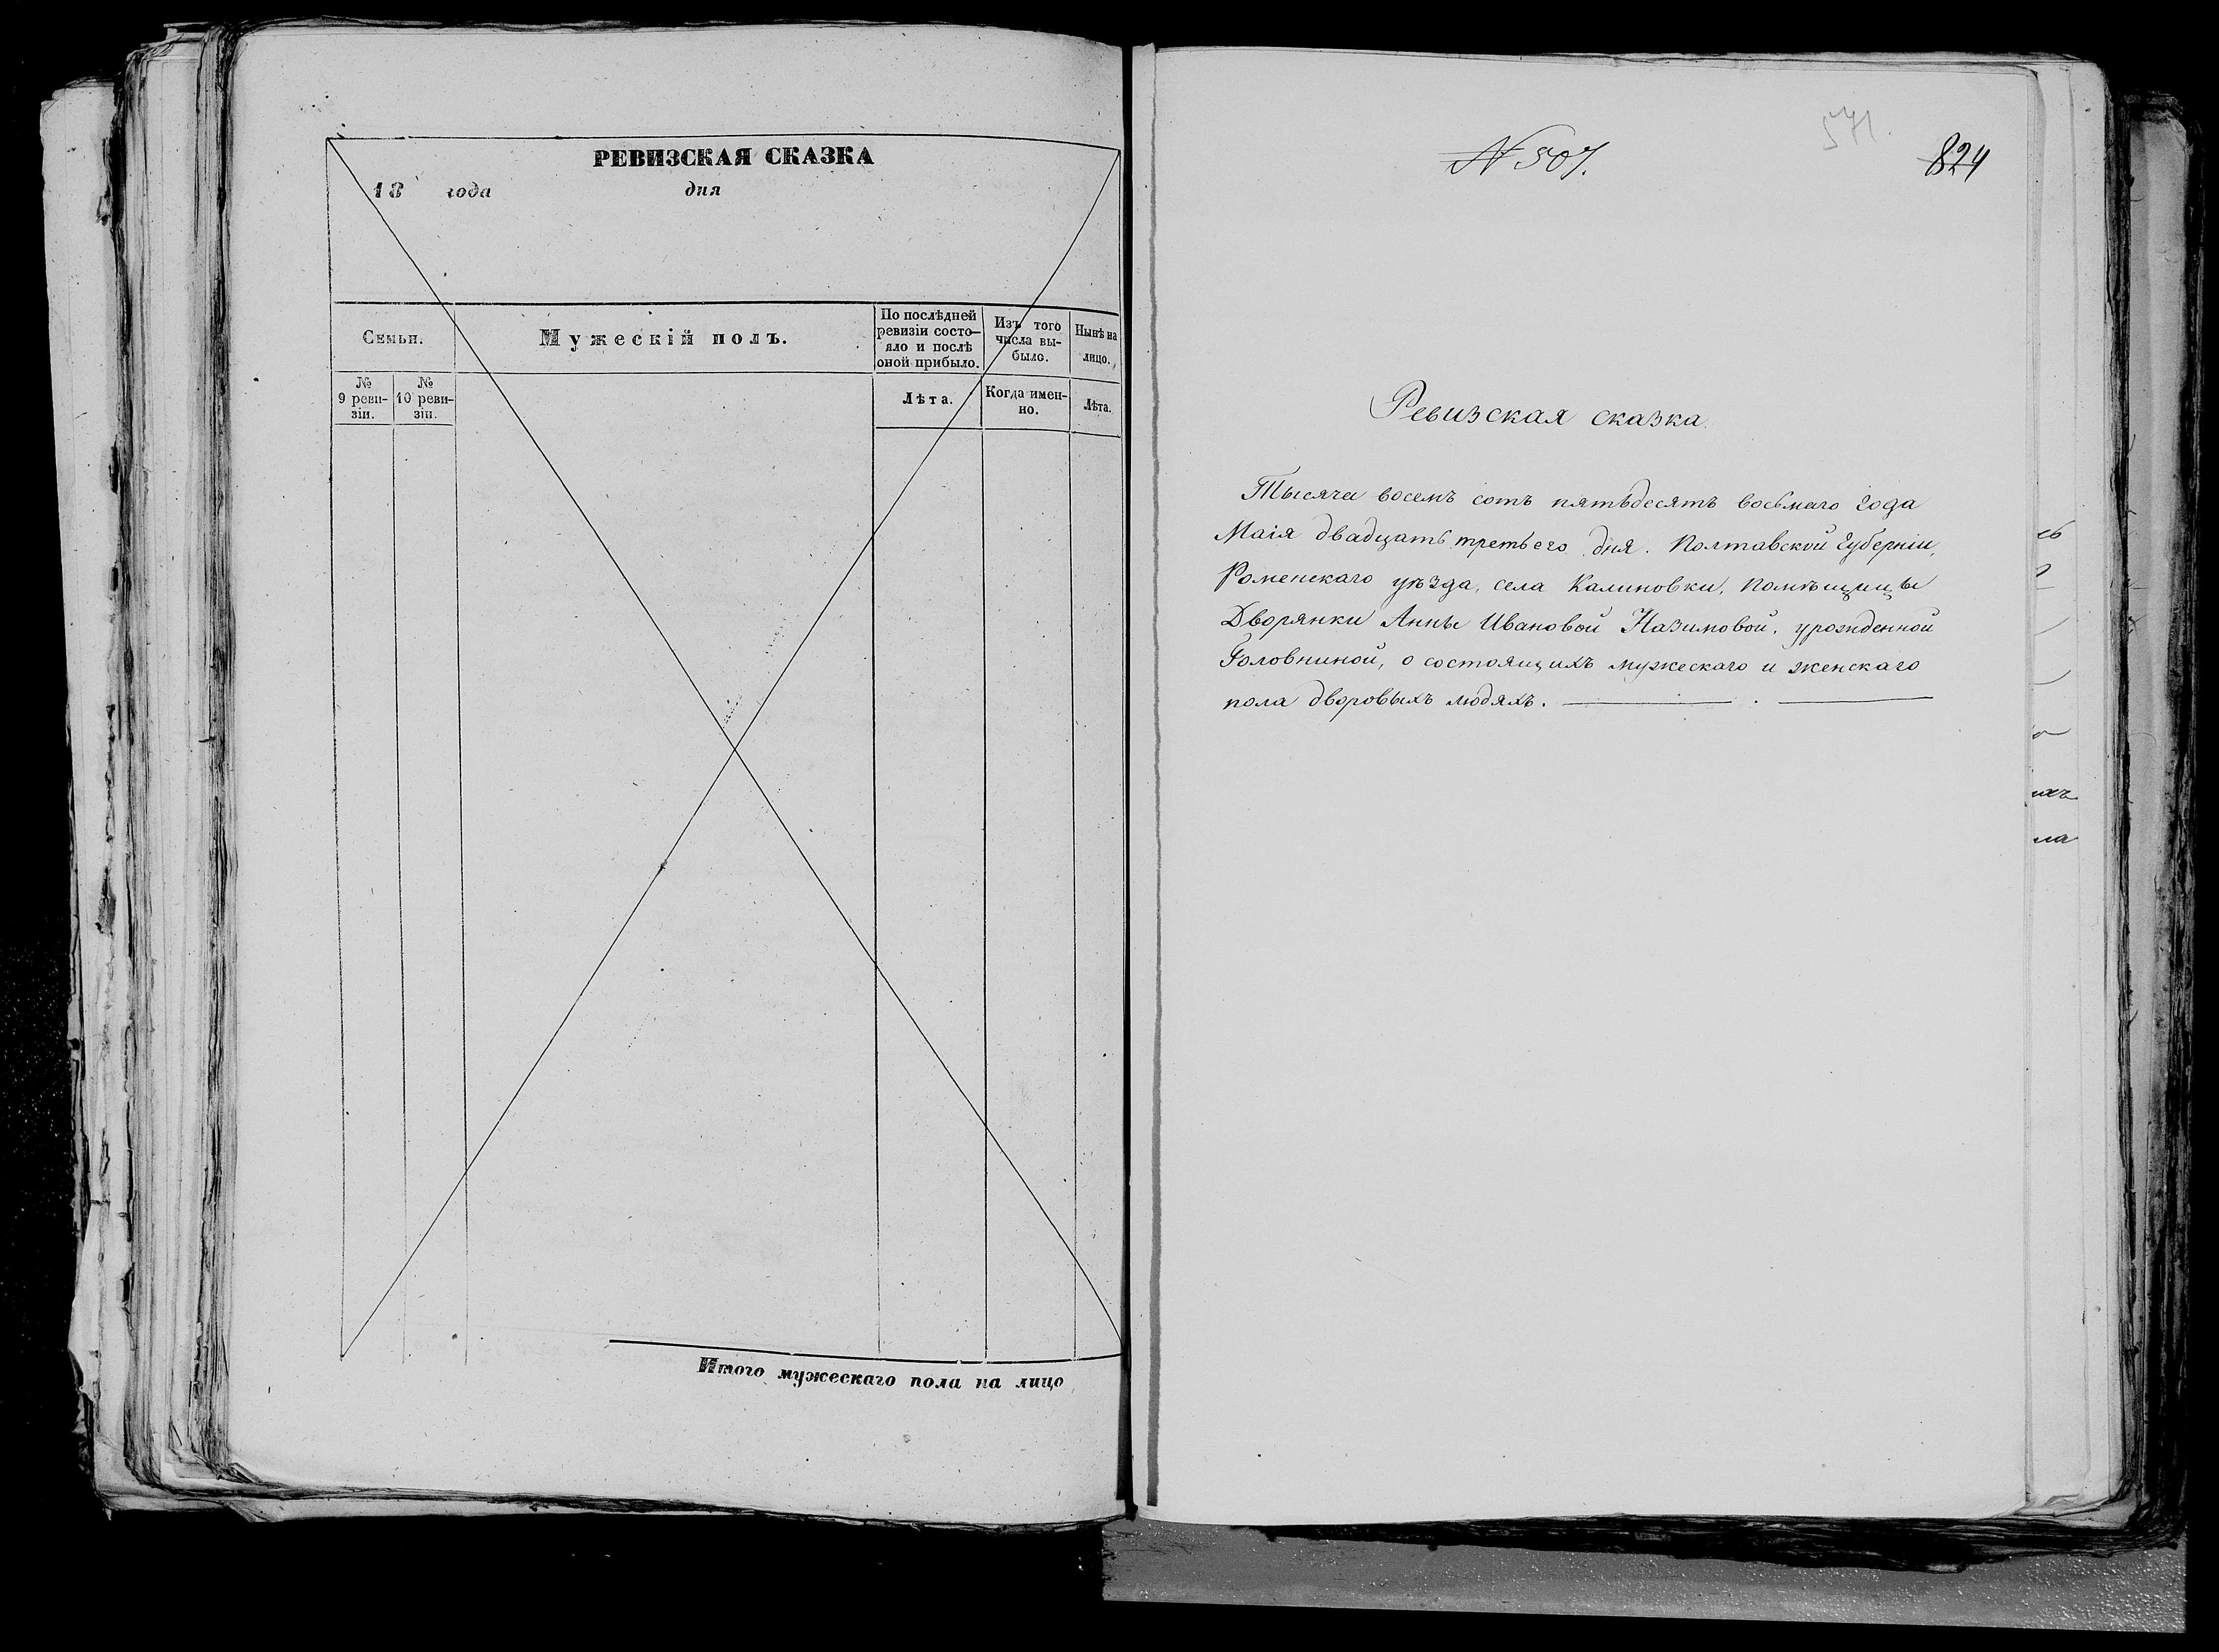 РЕВИЗСКАЯ СКАЗКА
18 года дня
Семьи.
Мужескій полъ.
По послѣдней
ревизіи состо-
яло и послѣ
оной прибыло.
Изъ того
числа вы-
было.
Нынѣ на
лицо.
№
9 реви-
зіи.
№
10 реви-
зіи.
Лѣта.
Когда имен-
но.
Лѣта.
Итого мужескаго пола на лицо
571.
824
№ 507.
Ревизская сказка.
Тысяча восемъ сотъ пятьдесятъ восьмаго года
Маія двадцать третьего дня. Полтавской Губерніи,
Роменскаго уѣзда, села Калиновки, помѣщицы
Дворянки Анны ИвановойНазимовой, урожденной
Головниной, о состоящихъ мужескаго и женскаго
пола дворовыхъ людяхъ.
ихъ
ла